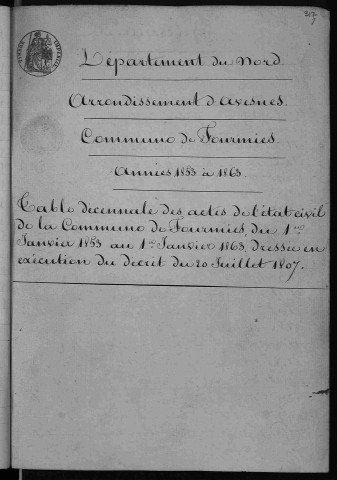 Département du Nord
Arrondissement d'Avesnes.
Commune de Fourmies.
Années 1853 à 1863.
Table décennale des actes de l'état civil
de la Commune de Fourmies, du 1er
Janvier 1853 au 1er Janvier 1863, dressée en
exécution du décret du 20 Juillet 1807.